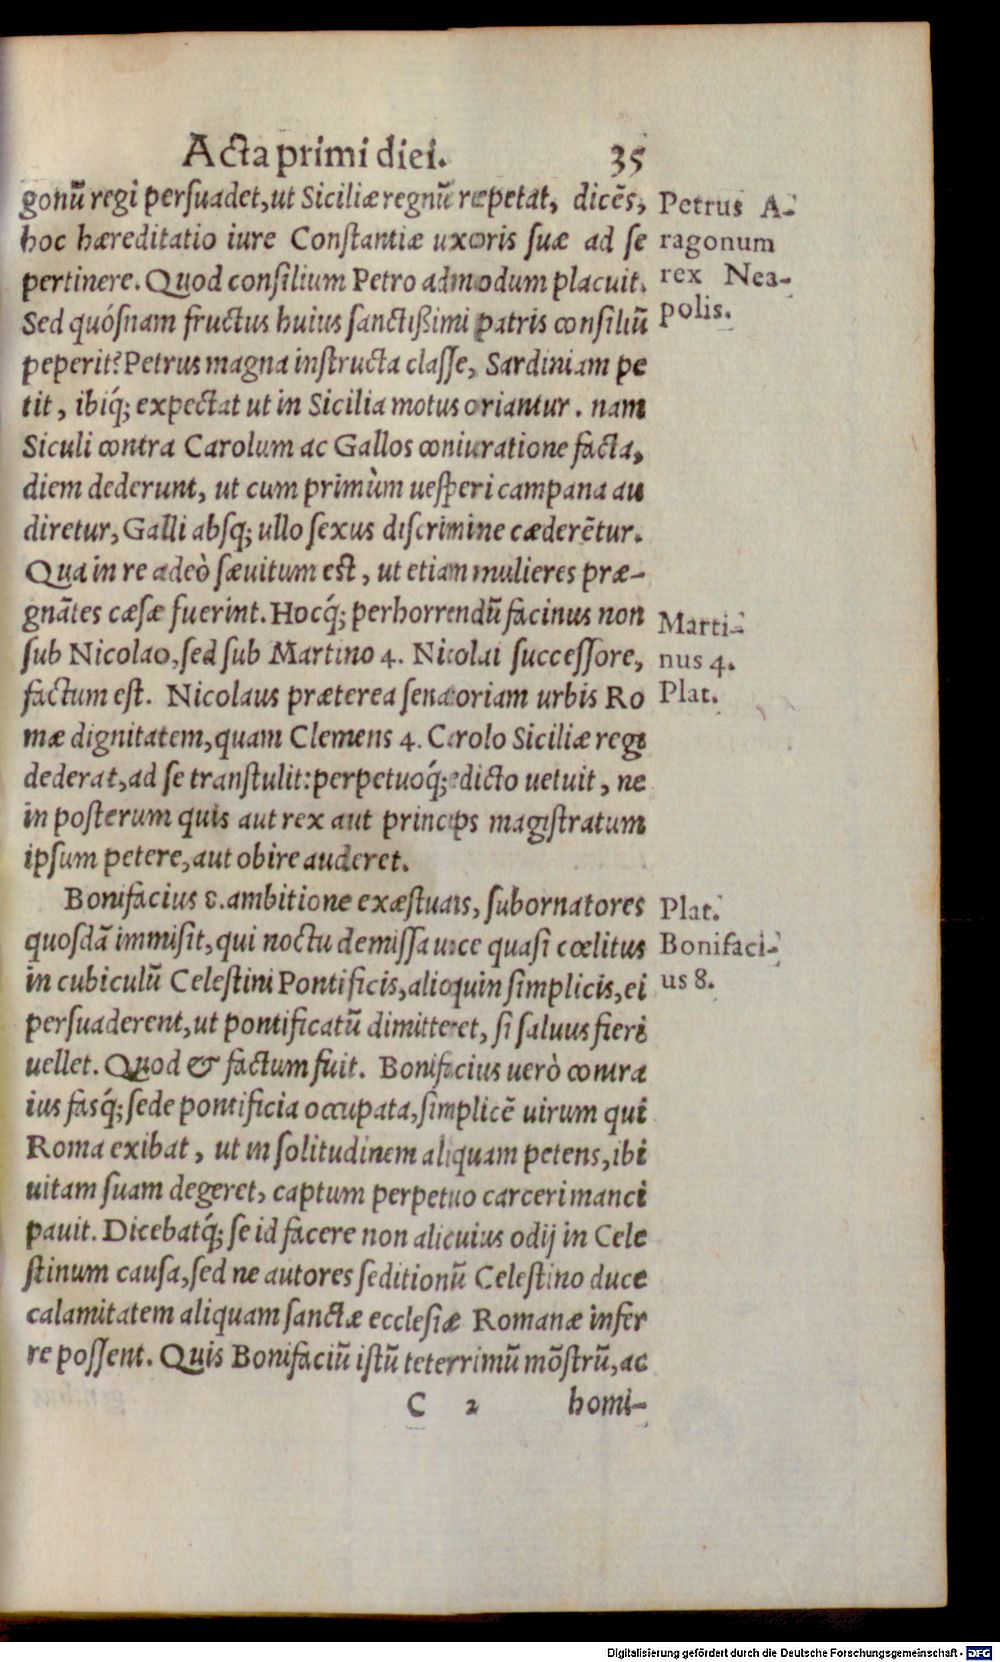 Acta primi diei. 35
gonũ regi persuadet, ut Siciliæ regnũ repetat, dicẽs,
hoc hæreditatio iure Constantiæ uxoris suæ ad se
pertinere. Quod consilium Petro admodum placuit.
Sed quósnam fructus huius sanctißimi patris consiliũ
peperit? Petrus magna instructa classe, Sardiniam pe
tit, ibiq́; expectat ut in Sicilia motus oriantur. nam
Siculi contra Carolum ac Gallos coniuratione facta,
diem dederunt, ut cum primùm uesperi campana au
diretur, Galli absq; ullo sexus discrimine cæderẽtur.
Qua in re adeò sæuitum est, ut etiam mulieres præ-
gnãtes cæsæ fuerint. Hocq́; perhorrendũ facinus non
sub Nicolao, sed sub Martino 4. Nicolai successore,
factum est. Nicolaus præterea senatoriam urbis Ro
mæ dignitatem, quam Clemens 4. Carolo Siciliæ regi
dederat, ad se transtulit: perpetuoq́; edicto uetuit, ne
in posterum quis aut rex aut princeps magistratum
ipsum petere, aut obire auderet.
Bonifacius 8. ambitione exæstuans, subornatores
quosdã immisit, qui noctu demissa uoce quasi cœlitus
in cubiculũ Celestini Pontificis, alioquin simplicis, ei
persuaderent, ut pontificatũ dimitteret, si saluus fieri
uellet. Quod & factum fuit. Bonifacius uerò contra
ius fasq́; sede pontificia occupata, simplicẽ uirum qui
Roma exibat, ut in solitudinem aliquam petens, ibi
uitam suam degeret, captum perpetuo carceri manci
pauit. Dicebatq́; se id facere non alicuius odij in Cele
stinum causa, sed ne autores seditionũ Celestino duce
calamitatem aliquam sanctæ ecclesiæ Romanæ infer
re possent. Quis Bonifaciũ istũ teterrimũ mõstrũ, ac
C 2 homi-
Petrus A-
ragonum
rex Nea-
polis.
Marti-
nus 4.
Plat.
Plat.
Bonifaci-
us 8.
Digitalisierung gefördert durch die Deutsche Forschungsgemeinschaft - DFG